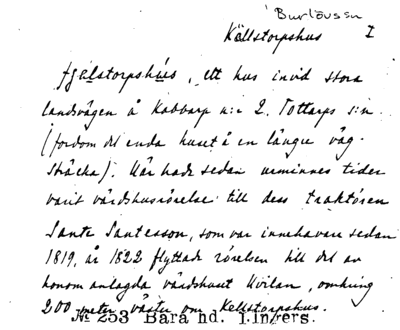 Burlövssn
Källstorpshus I
tjälstorpshús, ett hus invid stora
landsvägen å Kabbarp n:r 2. Tottarps s:n
(fordom det enda huset å en längre väg-
sträcka). Här hade sedan urminnes tider
varit värdshusrörelse till dess traktören
Sante Santesson, som var innehavare sedan
1819, år 1822 flyttade rörelsen till det av
honom anlagda värdshuset Hvilan, omkring
200 meter väster om Kellstorpshus.
№ 253 Bara hd. I.Ingers.